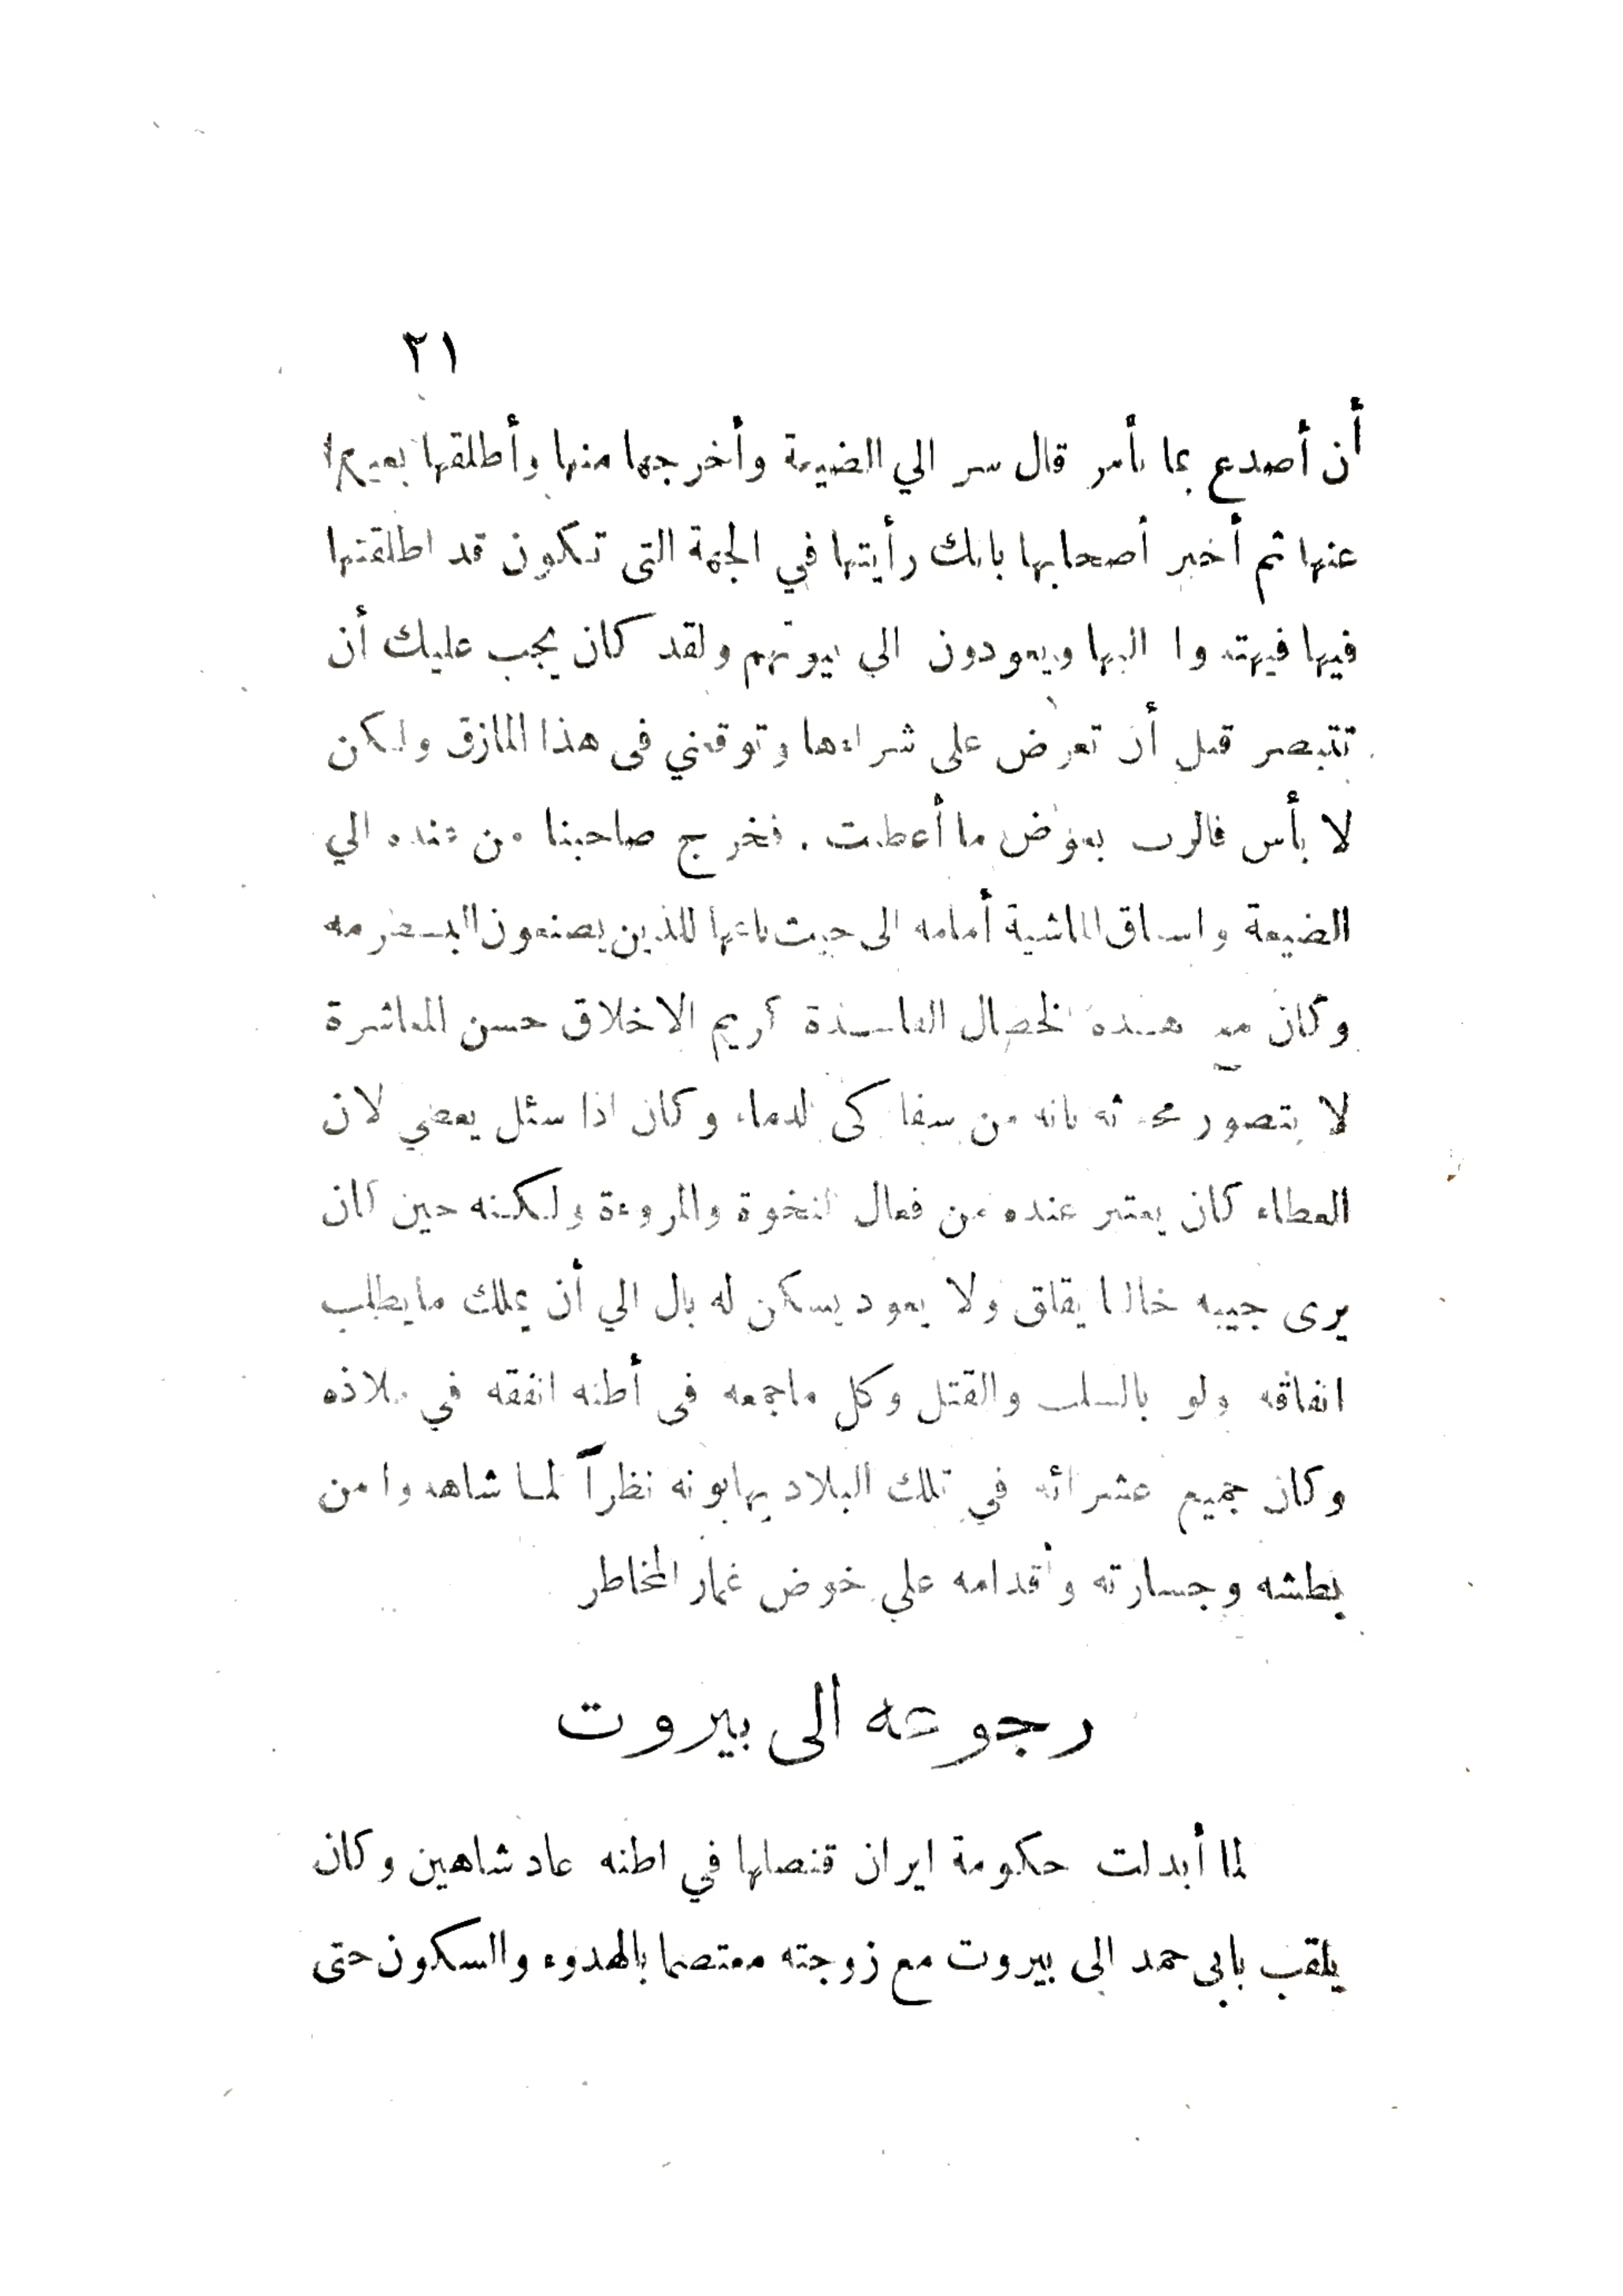 ٢١
أن أصدع بما تأمر قال سر الي الضيعة وأخرجها منها وأطلقها بعيدا
عنها ثم أخبر أصحابها بانك رأيتها في الجهة التى تكون قد اطلقتها
فيها فيهتدوا اليها ويعودون الى بيوتهم ولقد كان يجب عليك أن
تتبصر قبل أن تعرض على شراءها وتوقعني فى هذا المازق ولكن
لا بأس فالرب يعوض ما أعطيت . فخرج صاحبنا من عنده الي
الضيعة واساق الماشية أمامه الى حيث باعها للذين يصنعون البسطرمه
وكان مع هذه الخصال الفاسدة كريم الاخلاق حسن المعاشرة
لا يتصور محدثه بانه من سفاكى الدماء وكان اذا سئل يعطي لان
العطاء كان يعتبر عنده من فعال النخوة والمروءة ولكنه حين كان
يرى جيبه خاليا يقلق ولا يعود يسكن له بال الي أن يملك مايطلب
انفاقه ولو بالسلب والقتل وكل ماجمعه فى أطنه انفقه في ملاذه
وكان جميع عشرائه في تلك البلاد يهابونه نظراً لما شاهدوا من
بطشه وجسارته وأقدامه علي خوض غمار المخاطر
رجوعه الى بيروت
لما أبدلت حكومة ايران قنصلها في اطنه عاد شاهين وكان
يلقب بابى حمد الى بيروت مع زوجته معتصما بالهدوء والسكون حتى